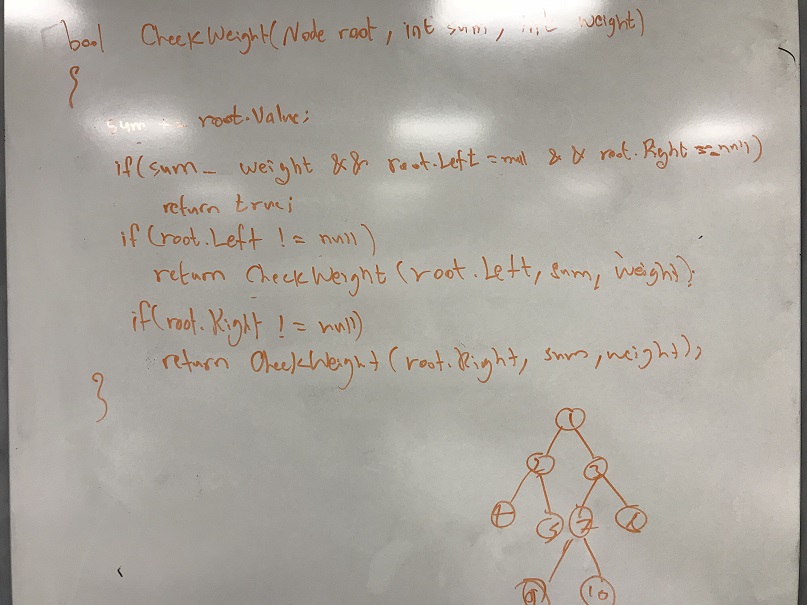 bool CheckWeight(Node root, int sum, int weight)
{
sum += root.Value;
if(sum = weight && root.Left = null && root.Right == null)
return true;
if(root.Left != null)
return CheckWeight(root.Left, sum, weight);
if(root.Right != null)
return CheckWeight(root.Right, sum, weight);
}
1
3
5 7
10